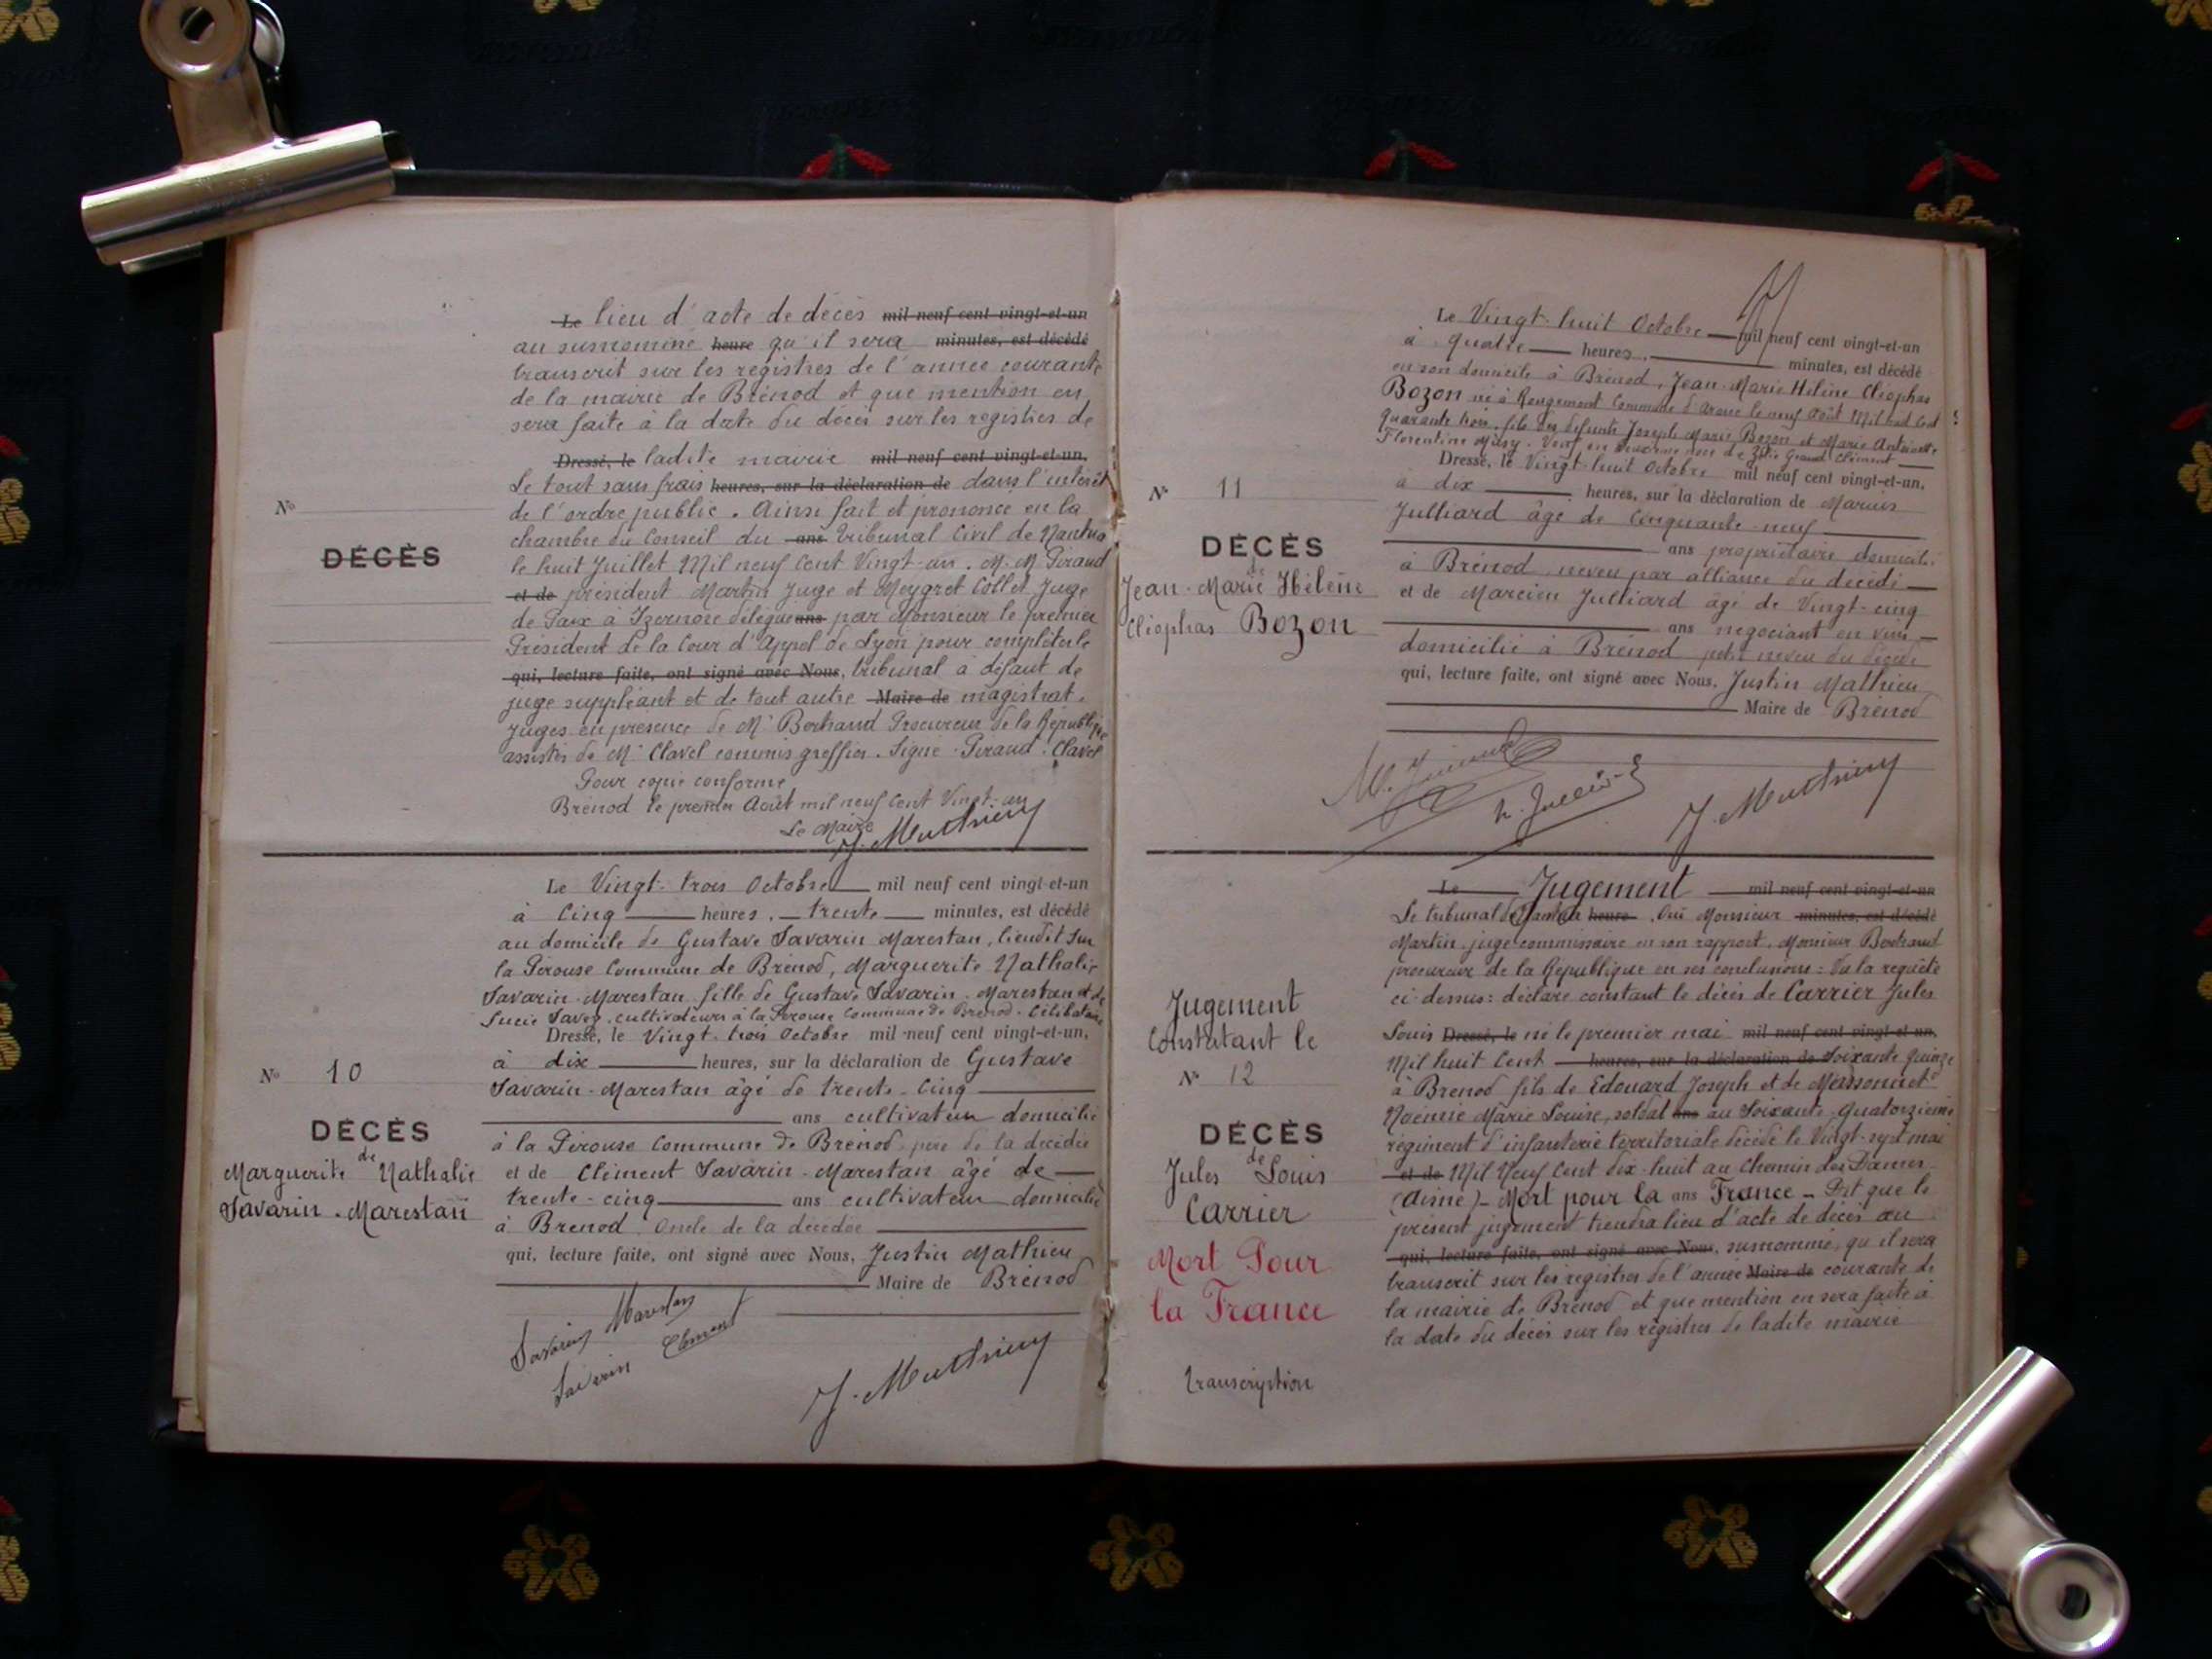 Le lieu d'acte de décès mil neuf cent vingt-et-un
au susnommé heure qu'il sera minutes, est décédé
transcrit sur les registres de l'année courante
de la mairie de Brénod et que mention en
sera faite à la date du décès sur les registres de
Dressé, le ladite mairie mil neuf cent vingt-et-un,
Le tout sans frais heures, sur la déclaration de dans l'intérêt
de l'ordre public. Ainsi fait et prononcé en la
chambre du Conseil du ans tribunal Civil de Nantua
le huit Juillet Mil neuf Cent Vingt-un. M.M. Giraud
et de président Martin Juge et Meygret Collet Juge
de Paix à Izernore délégué ans par Monsieur le premier
Président de la Cour d'Appel de Lyon pour compléter le
qui, lecture faite, ont signé avec Nous, tribunal à défaut de
juge suppléant et de tout autre Maire de magistrat.
Juges en présence de Mr Bertrand Procureur de la République
assistés de Mr Clavel commis greffier. Signé. Giraud. Clavel
Pour copie conforme
Brénod le premier Août mil neuf Cent Vingt-un
Le Maire
J. Mathieu
No
DÉCÈS
Le Vingt-trois Octobre mil neuf cent vingt-et-un
à Cinq heures, trente minutes, est décédé
au domicile de Gustave Savarin Marestan, lieudit sur
la Pérouse Commune de Brénod, Marguerite Nathalie
Savarin-Marestan fille de Gustave Savarin-Marestan et de
Lucie Savey, cultivateurs à la Pérouse Commune de Brénod. Célibataire
Dressé, le Vingt-trois Octobre mil neuf cent vingt-et-un,
à dix heures, sur la déclaration de Gustave
Savarin-Marestan âgé de trente-cinq
ans cultivateur domicilié
à la Pérouse Commune de Brénod, père de la décédée
et de Clément Savarin-Marestan âgé de
trente-cinq ans cultivateur domicilié
à Brénod. Oncle de la décédée
qui, lecture faite, ont signé avec Nous, Justin Mathieu
Maire de Brénod
No 10
DÉCÈS
de
Marguerite Nathalie
Savarin-Marestan
Savarin Marestan
Savarin Clément
J. Mathieu
Le Vingt-huit Octobre mil neuf cent vingt-et-un
à quatre heures, minutes, est décédé
en son domicile à Brénod, Jean-Marie Hélène Cléophas
Bozon né à Rougemont Commune d'Aranc le neuf Août Mil huit Cent
quarante trois, fils des défunts Joseph Marie Bozon et Marie Antoinette
Florentine Mary. Veuf en deuxième noce de Zélie Grand Clément
Dressé, le Vingt-huit Octobre mil neuf cent vingt-et-un,
à dix heures, sur la déclaration de Marius
Julliard âgé de Cinquante-neuf
ans propriétaire domicilié
à Brénod, neveu par alliance du décédé
et de Marcien Julliard âgé de Vingt-cinq
ans négociant en vins
domicilié à Brénod petit neveu du décédé
qui, lecture faite, ont signé avec Nous, Justin Mathieu
Maire de Brénod
No 11
DÉCÈS
de
Jean-Marie Hélène
Cléophas Bozon
J. Mathieu
Le Jugement mil neuf cent vingt-et-un
Le tribunal de Nantua heure, Oui Monsieur minutes, est décédé
Martin, juge commissaire en son rapport, Monsieur Bertrand
procureur de la République en ses conclusions: Vu la requête
ci-dessus: déclare constant le décès de Carrier Jules
Louis Dressé, le né le premier mai mil neuf cent vingt-et-un,
Mil huit Cent heures, sur la déclaration de Soixante quinze
à Brénod fils de Edouard Joseph et de Messonnet
Noémie Marie Louise, soldat ans au Soixante-quatorzième
régiment d'infanterie territoriale décédé le Vingt-sept mai
et de Mil Neuf Cent dix-huit au Chemin des Dames
(Aisne) - Mort pour la ans France - Dit que le
présent jugement tiendra lieu d'acte de décès au
qui, lecture faite, ont signé avec Nous, susnommé, qu'il sera
transcrit sur les registres de l'année Maire de courante de
la mairie de Brénod et que mention en sera faite à
la date du décès sur les registres de ladite mairie
Jugement
Constatant le
No 12
DÉCÈS
de
Jules Louis
Carrier
Mort Pour
la France
transcription